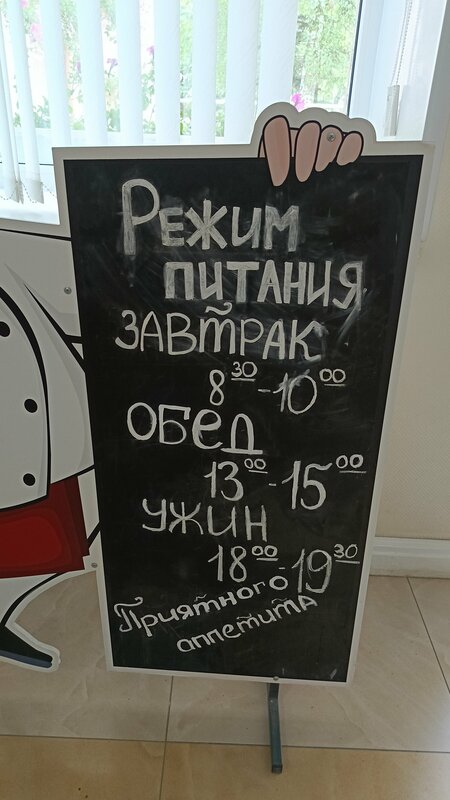 РЕЖИМ
ПИТАНИЯ
ЗАВТРАК
8³⁰-10⁰⁰
ОБЕД
13⁰⁰-15⁰⁰
УЖИН
18⁰⁰-19³⁰
Приятного
аппетита